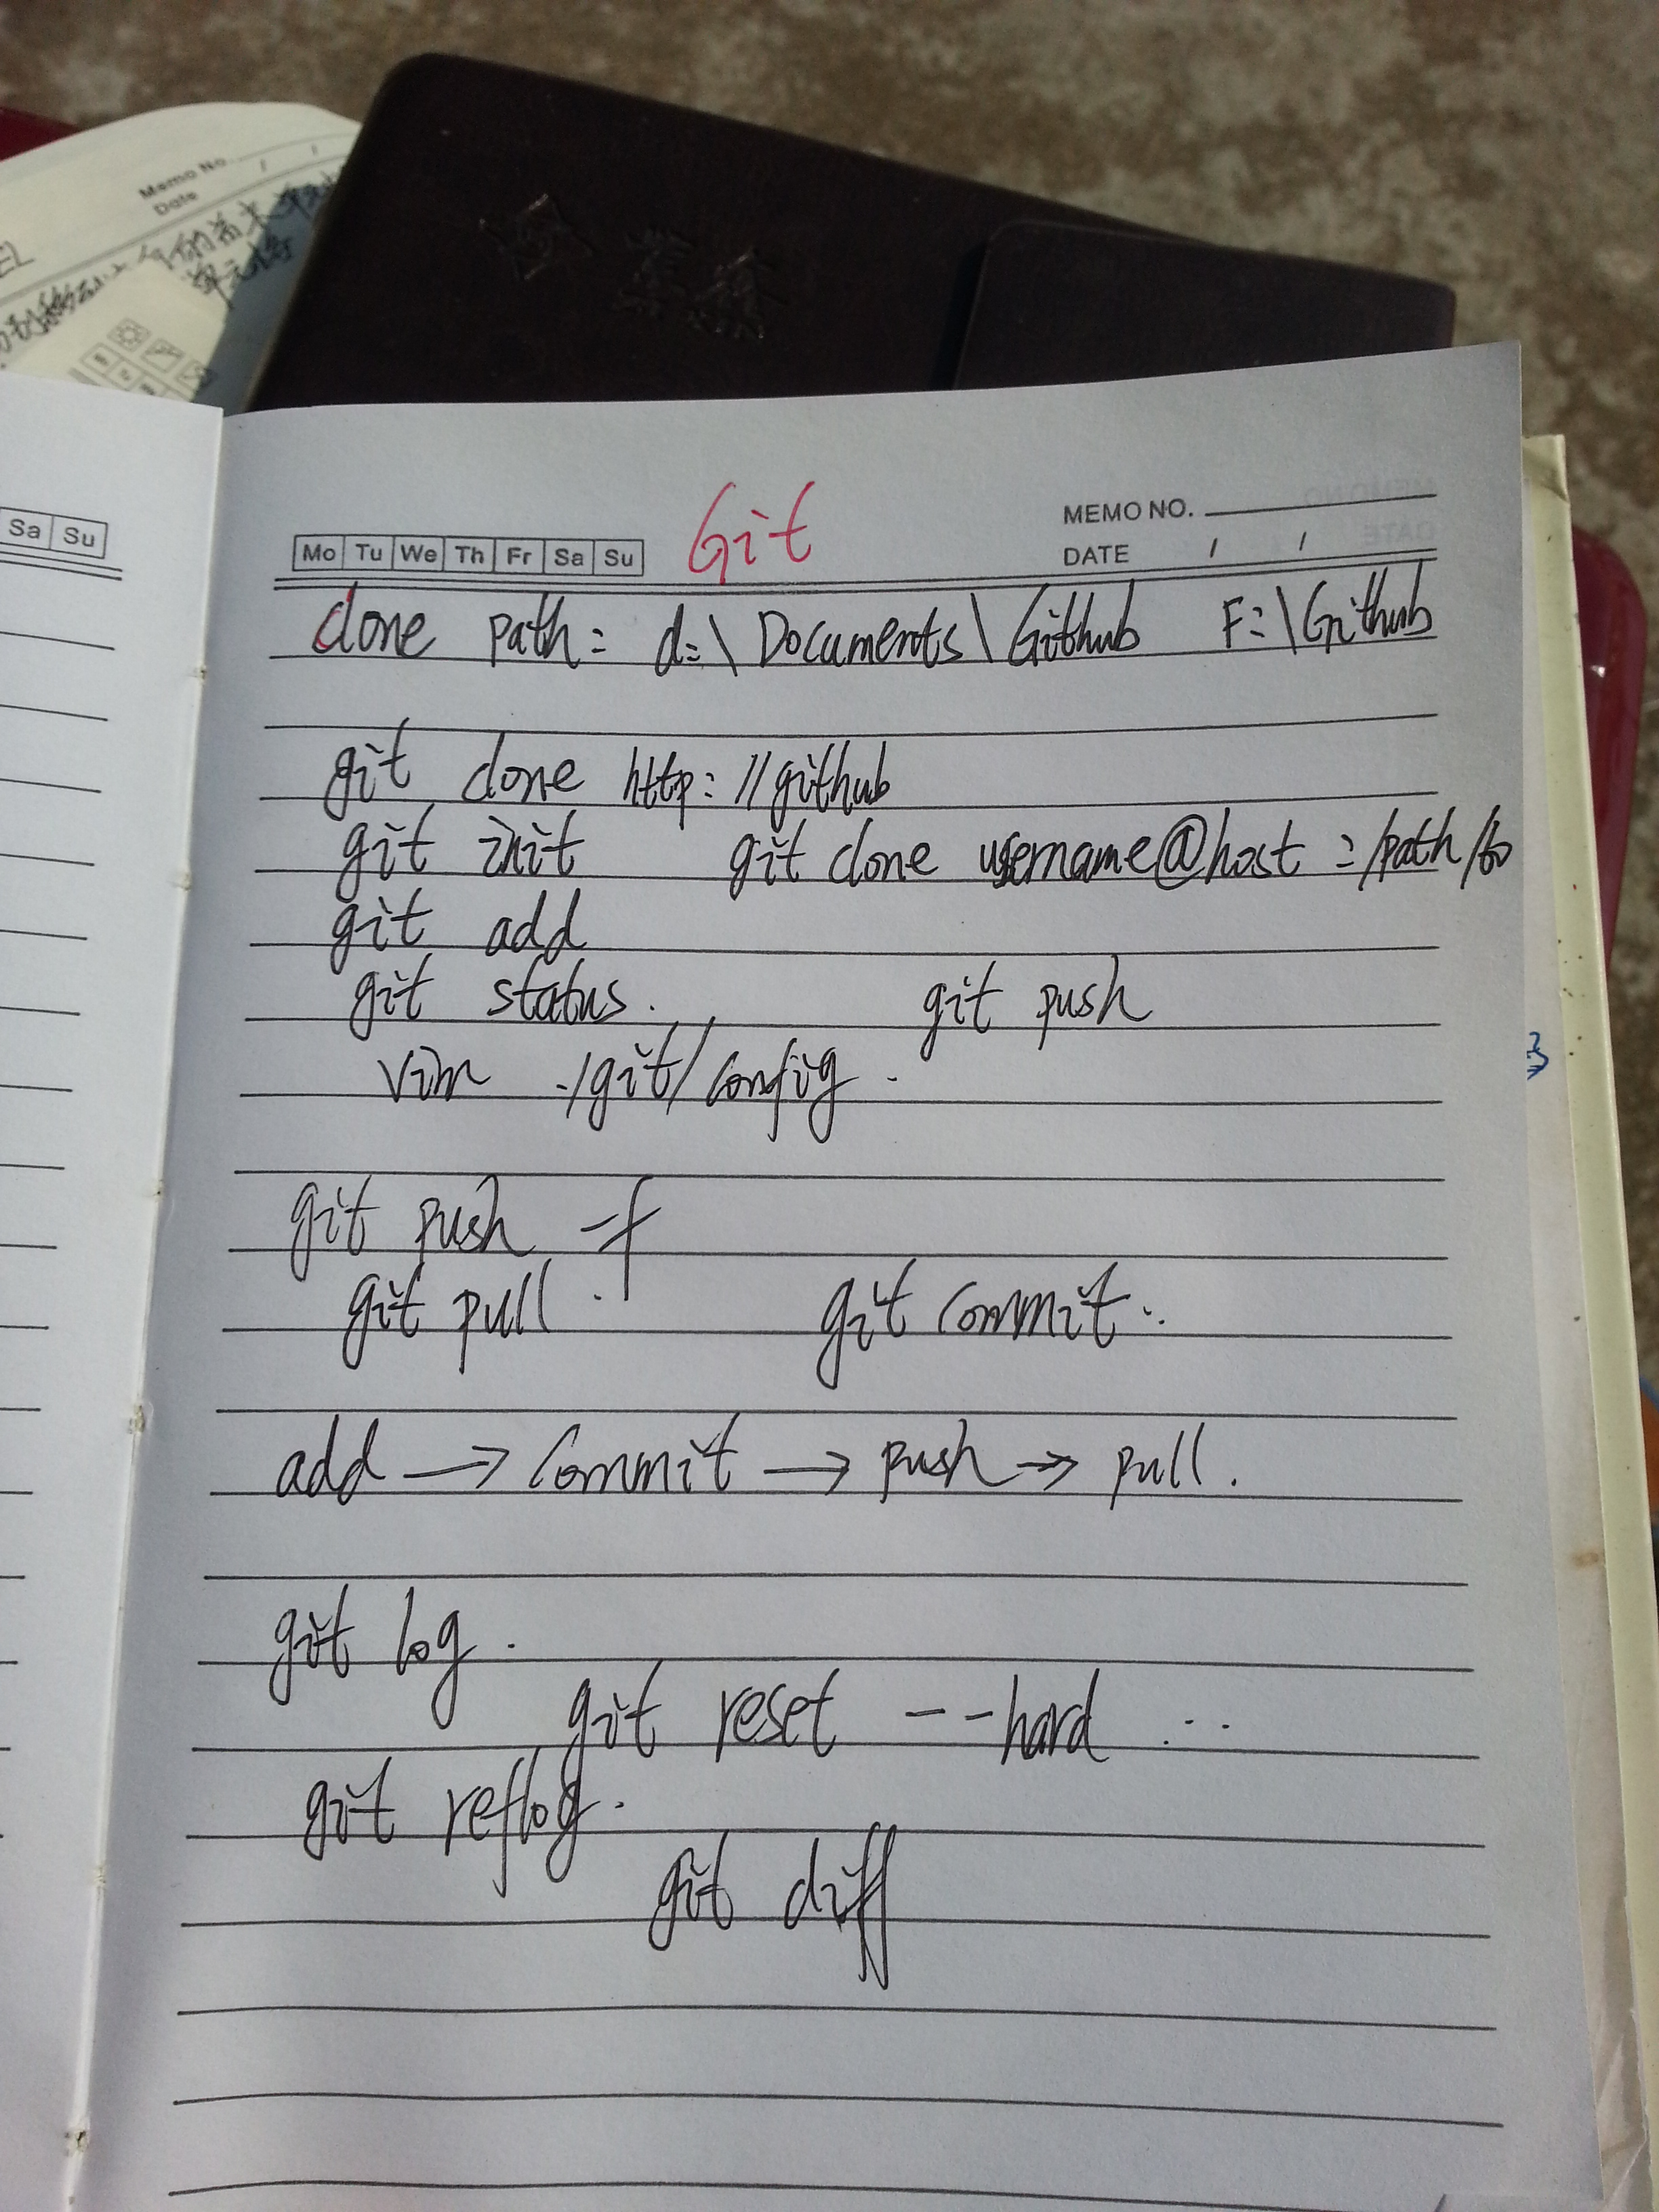 Memo No.
Date
Sa Su
Mo Tu We Th Fr Sa Su
Git
MEMO NO.
DATE / /
clone path: d:\Documents\Github F:\Github
git clone http://github
git init git clone username@host:/path/to
git add
git status. git push
vim ./git/config.
git push -f
git pull. git commit..
add → commit → push → pull.
git log.
git reset --hard ..
git reflog.
git diff